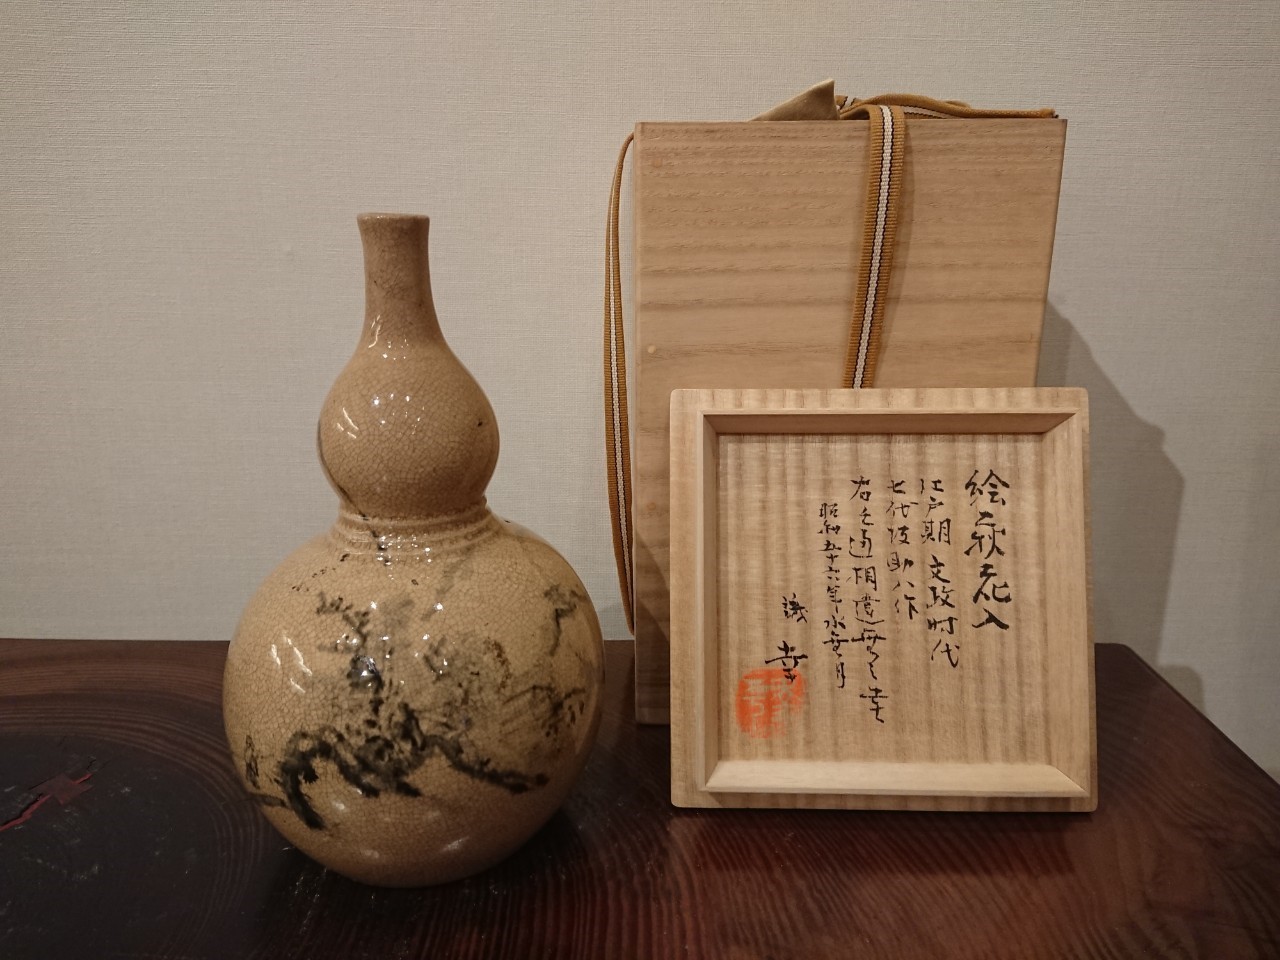 絵萩花入
江戸期 文政时代
七代坂助八作
右之通相違無之者也
昭和五十六年水無月
識 幸